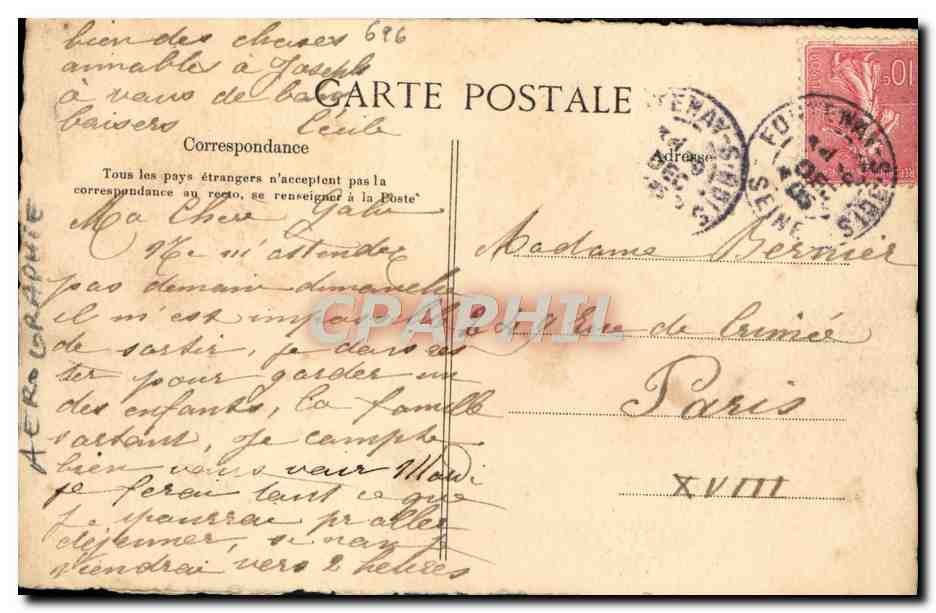 bien des choses 696
aimables à Joseph
à vous de bons
baisers Cécile
CARTE POSTALE
Correspondance
Tous les pays étrangers n'acceptent pas la
correspondance au recto, se renseigner à la Poste
Adresse
FONTENAY-S-BOIS
SEINE
10c
AEROGRAPHIE
Ma Chère Gabr
Ne m'attendez
pas demain dimanche
il m'est impossible
de sortir, je dois res
ter pour garder un
des enfants, la famille
sortant, je compte
bien vous voir Mardi
je ferai tout ce que
je pourrai pr aller
déjeuner, si non je
viendrai vers 2 heures
Madame Bernier
Rue de Crimée
Paris
XVIII
CPAPHIL